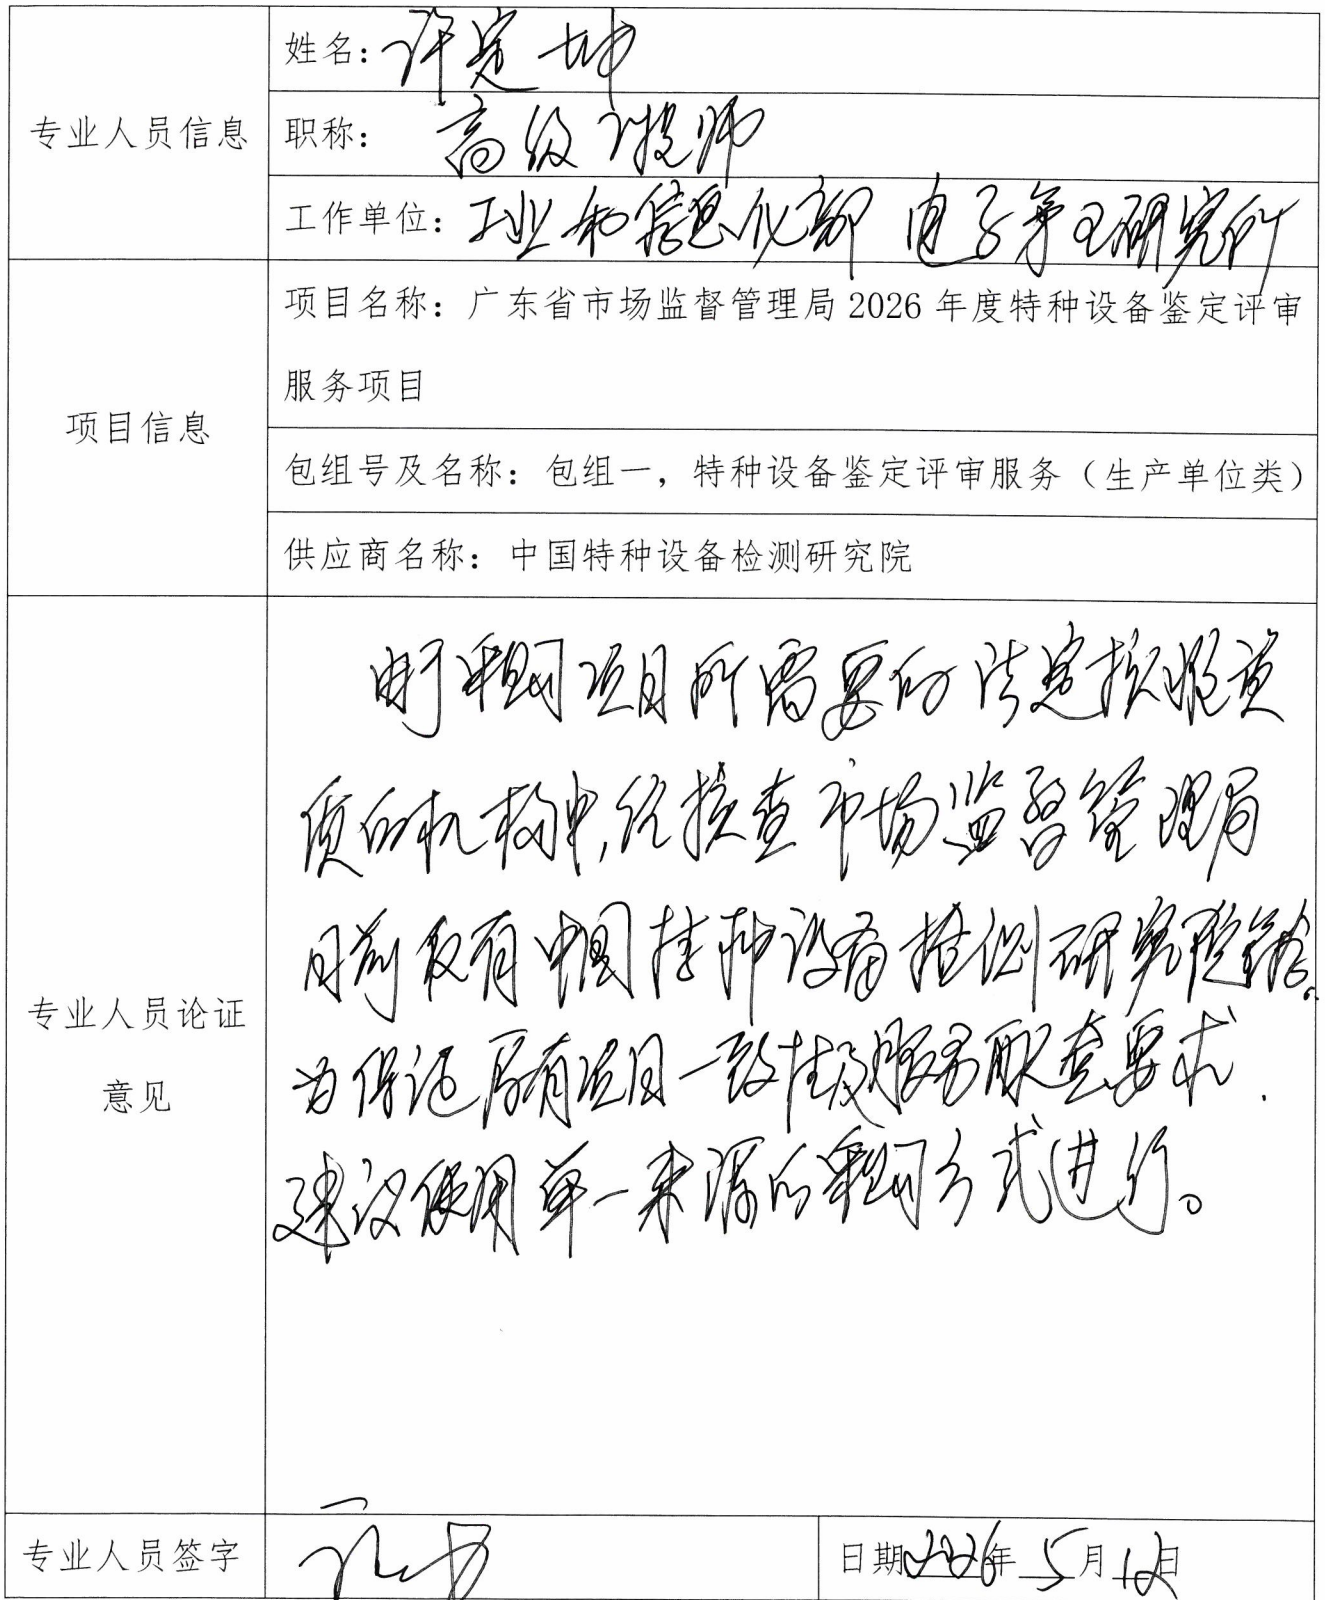 专业人员信息
姓名：许定坤
职称：高级工程师
工作单位：工业和信息化部 电子第五研究所
项目信息
项目名称：广东省市场监督管理局 2026 年度特种设备鉴定评审
服务项目
包组号及名称：包组一，特种设备鉴定评审服务（生产单位类）
供应商名称：中国特种设备检测研究院
专业人员论证
意见
由于采购项目所需要的法定核服资
质的机构中,经核查市场监督管理局
目前仅有中国特种设备检测研究院
为保证原有项目一致性及服务配套要求.
建议使用单一来源的采购方式进行。
专业人员签字
日期2026年 5月 12日